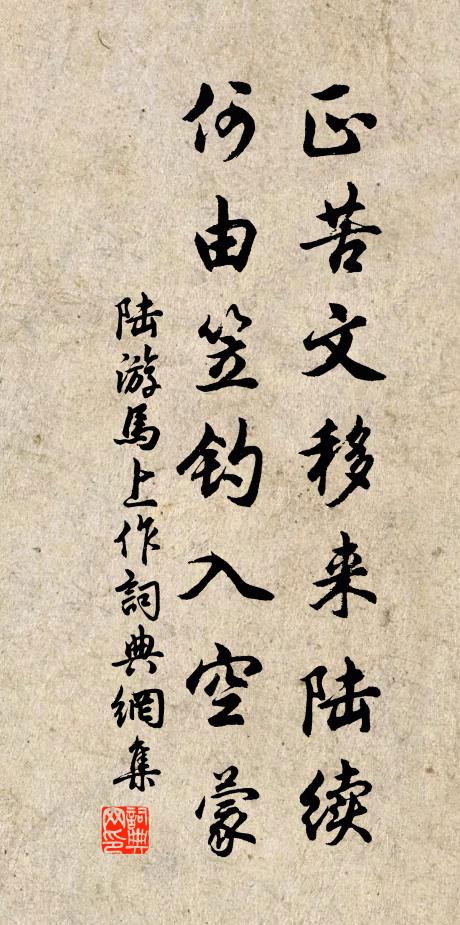 正苦文移来陆续
何由笠钓入空蒙
陆游馬上作詞典網集
詞典网印